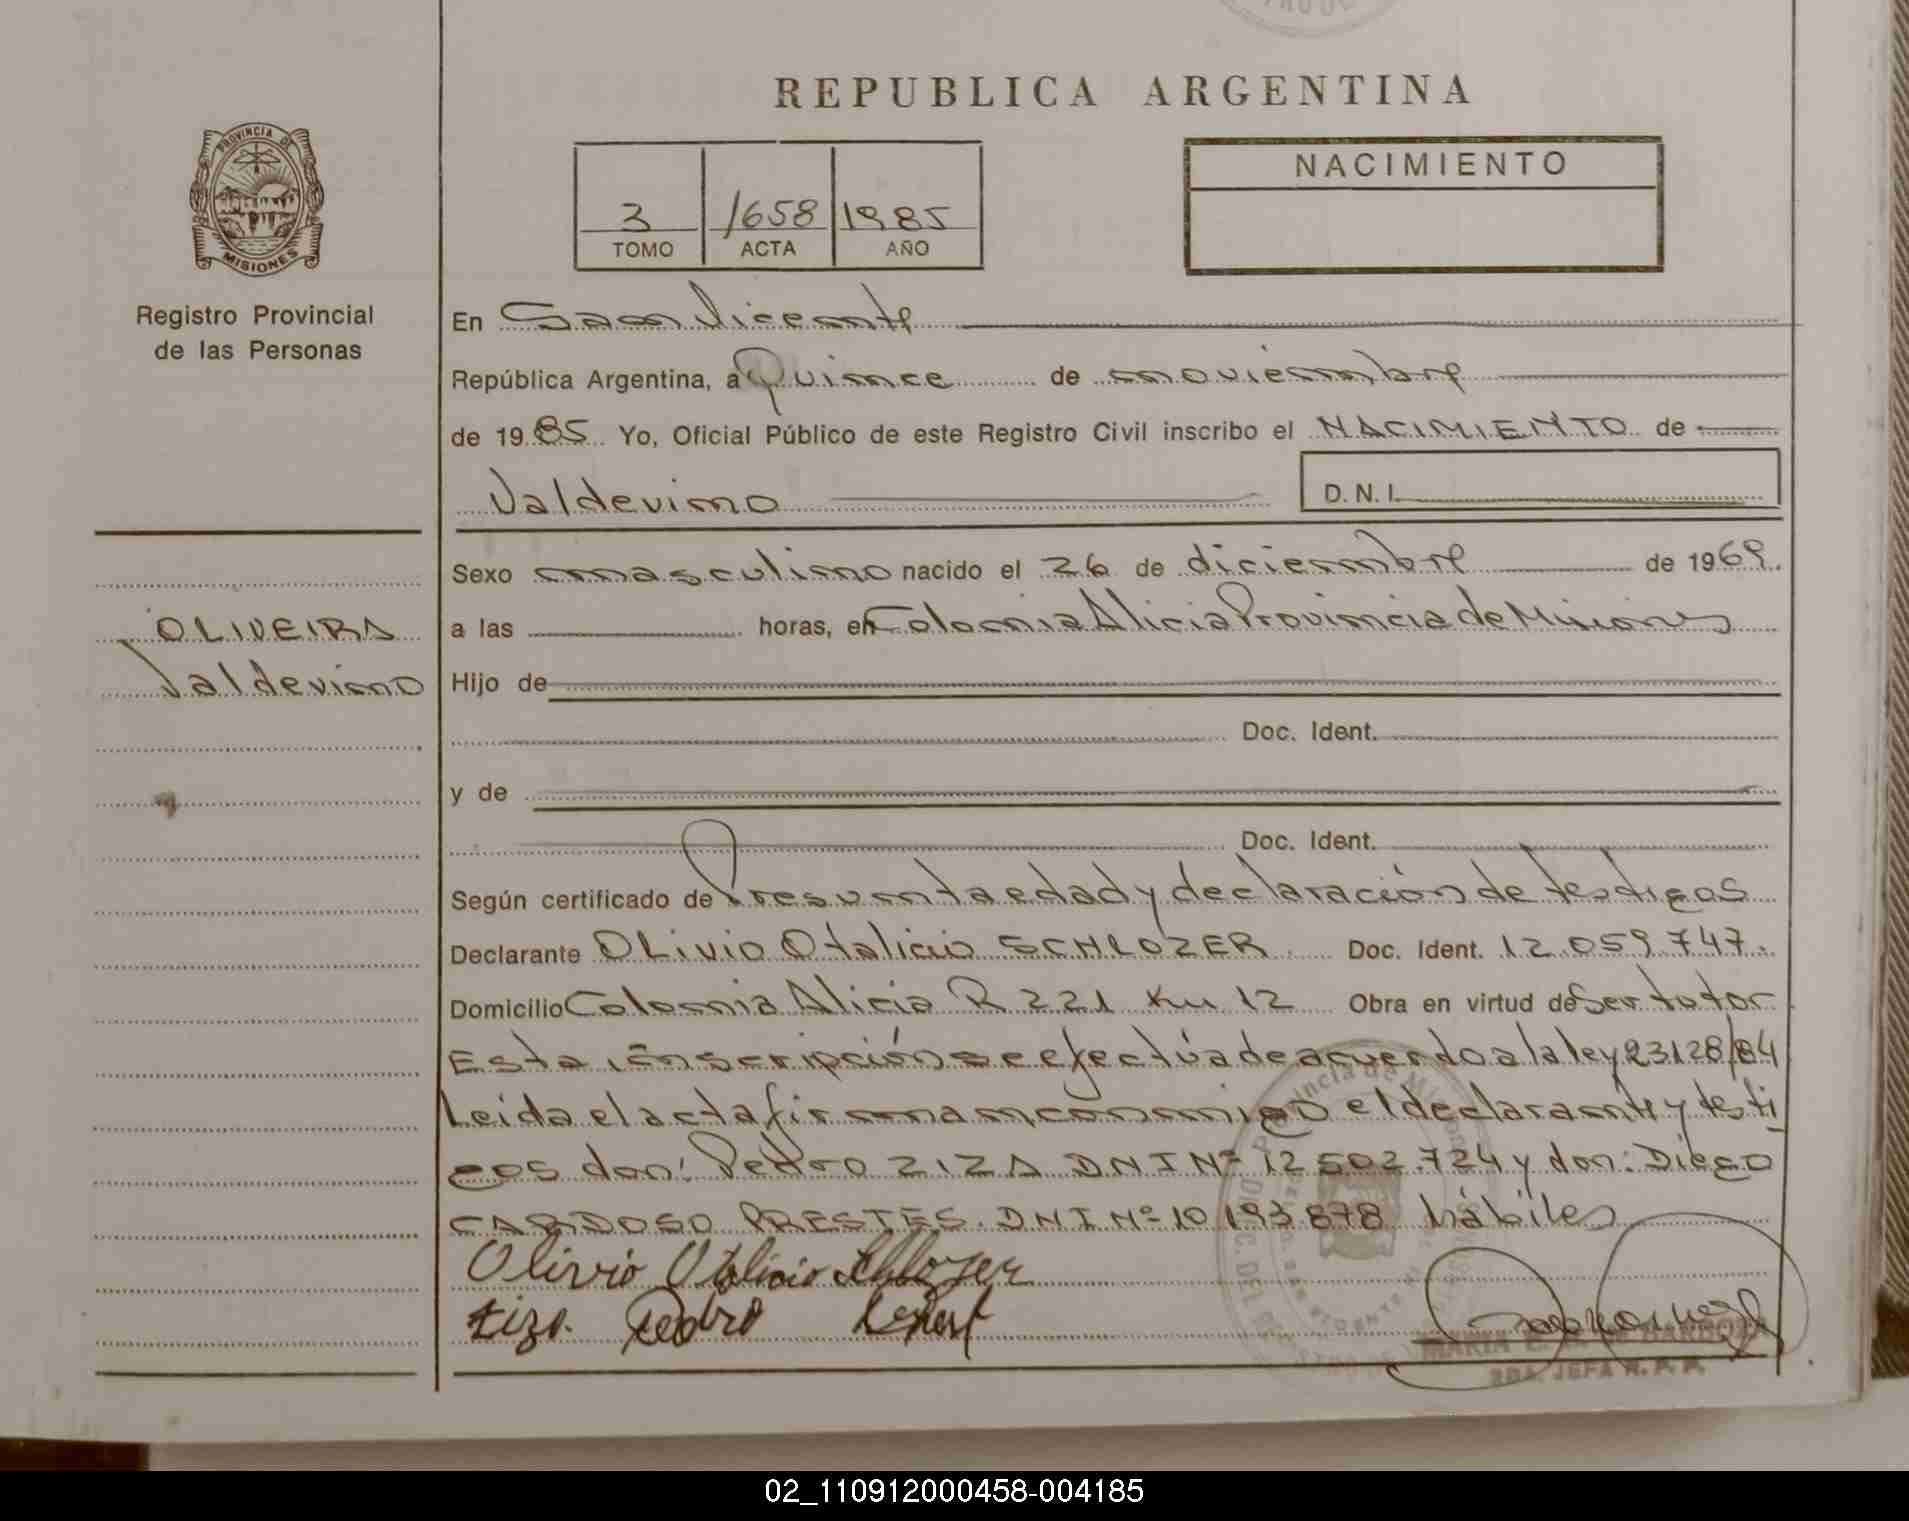 REPUBLICA ARGENTINA
PROVINCIA DE
MISIONES
Registro Provincial
de las Personas
3 1658 1985
TOMO ACTA AÑO
NACIMIENTO
En San Vicente
República Argentina, a Quince de noviembre
de 1985 Yo, Oficial Público de este Registro Civil inscribo el NACIMIENTO de
Valdevino D.N.I.
Sexo masculino nacido el 26 de diciembre de 1969.
OLIVEIRA
Valdevino
a las horas, en Colonia Alicia Provincia de Misiones
Hijo de
Doc. Ident.
y de
Doc. Ident.
Según certificado de Presunta edad y declaración de testigos
Declarante OLivio Otalicio SCHLOZER Doc. Ident. 12.059.747.
Domicilio Colonia Alicia R 221 Km 12 Obra en virtud de Ser tutor
Esta inscripción se efectúa de acuerdo a la ley 23128/84
Leida el acta firman conmigo el declarante y testi
gos don: Pedro ZIZA DNI Nº 12502.724 y don: Diego
CARDOSO PRESTES. DNI Nº 10 193 878 hábiles
Olivio Otalicio Schlozer
Pedro
MARIA E. BARBOZA
JEFA R. P. P.
02_110912000458-004185